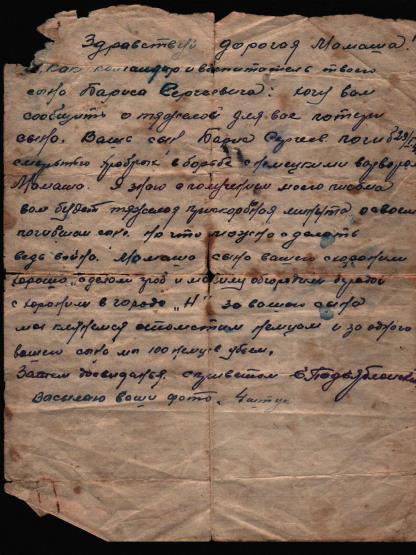 Здравствуй дорогая Мамаша!
я как командир и воспитатель твоего
сына Бариса Сергеевича: хочу вам
сообщить о тяжолой для вас потери
сына. Ваш сын Барис Сергеев погиб
смертью храбрых в борьбе с немецкими варварами
Мамаша. Я знаю с получением моего письма
вам будет тяжолая прискорбная минута, о вашем
погибшем сыне. но что можно сделать
ведь война. Мамаша сына вашего схоронили
хорошо, сделали гроб и могилу обгородили
схоронили в городе „Н" за вашего сына
мы клянемся отомстим немцам и за одного
вашего сына мы 100 немцев убьем.
Затем досвиданья. с приветом
Высылаю ваши фото.